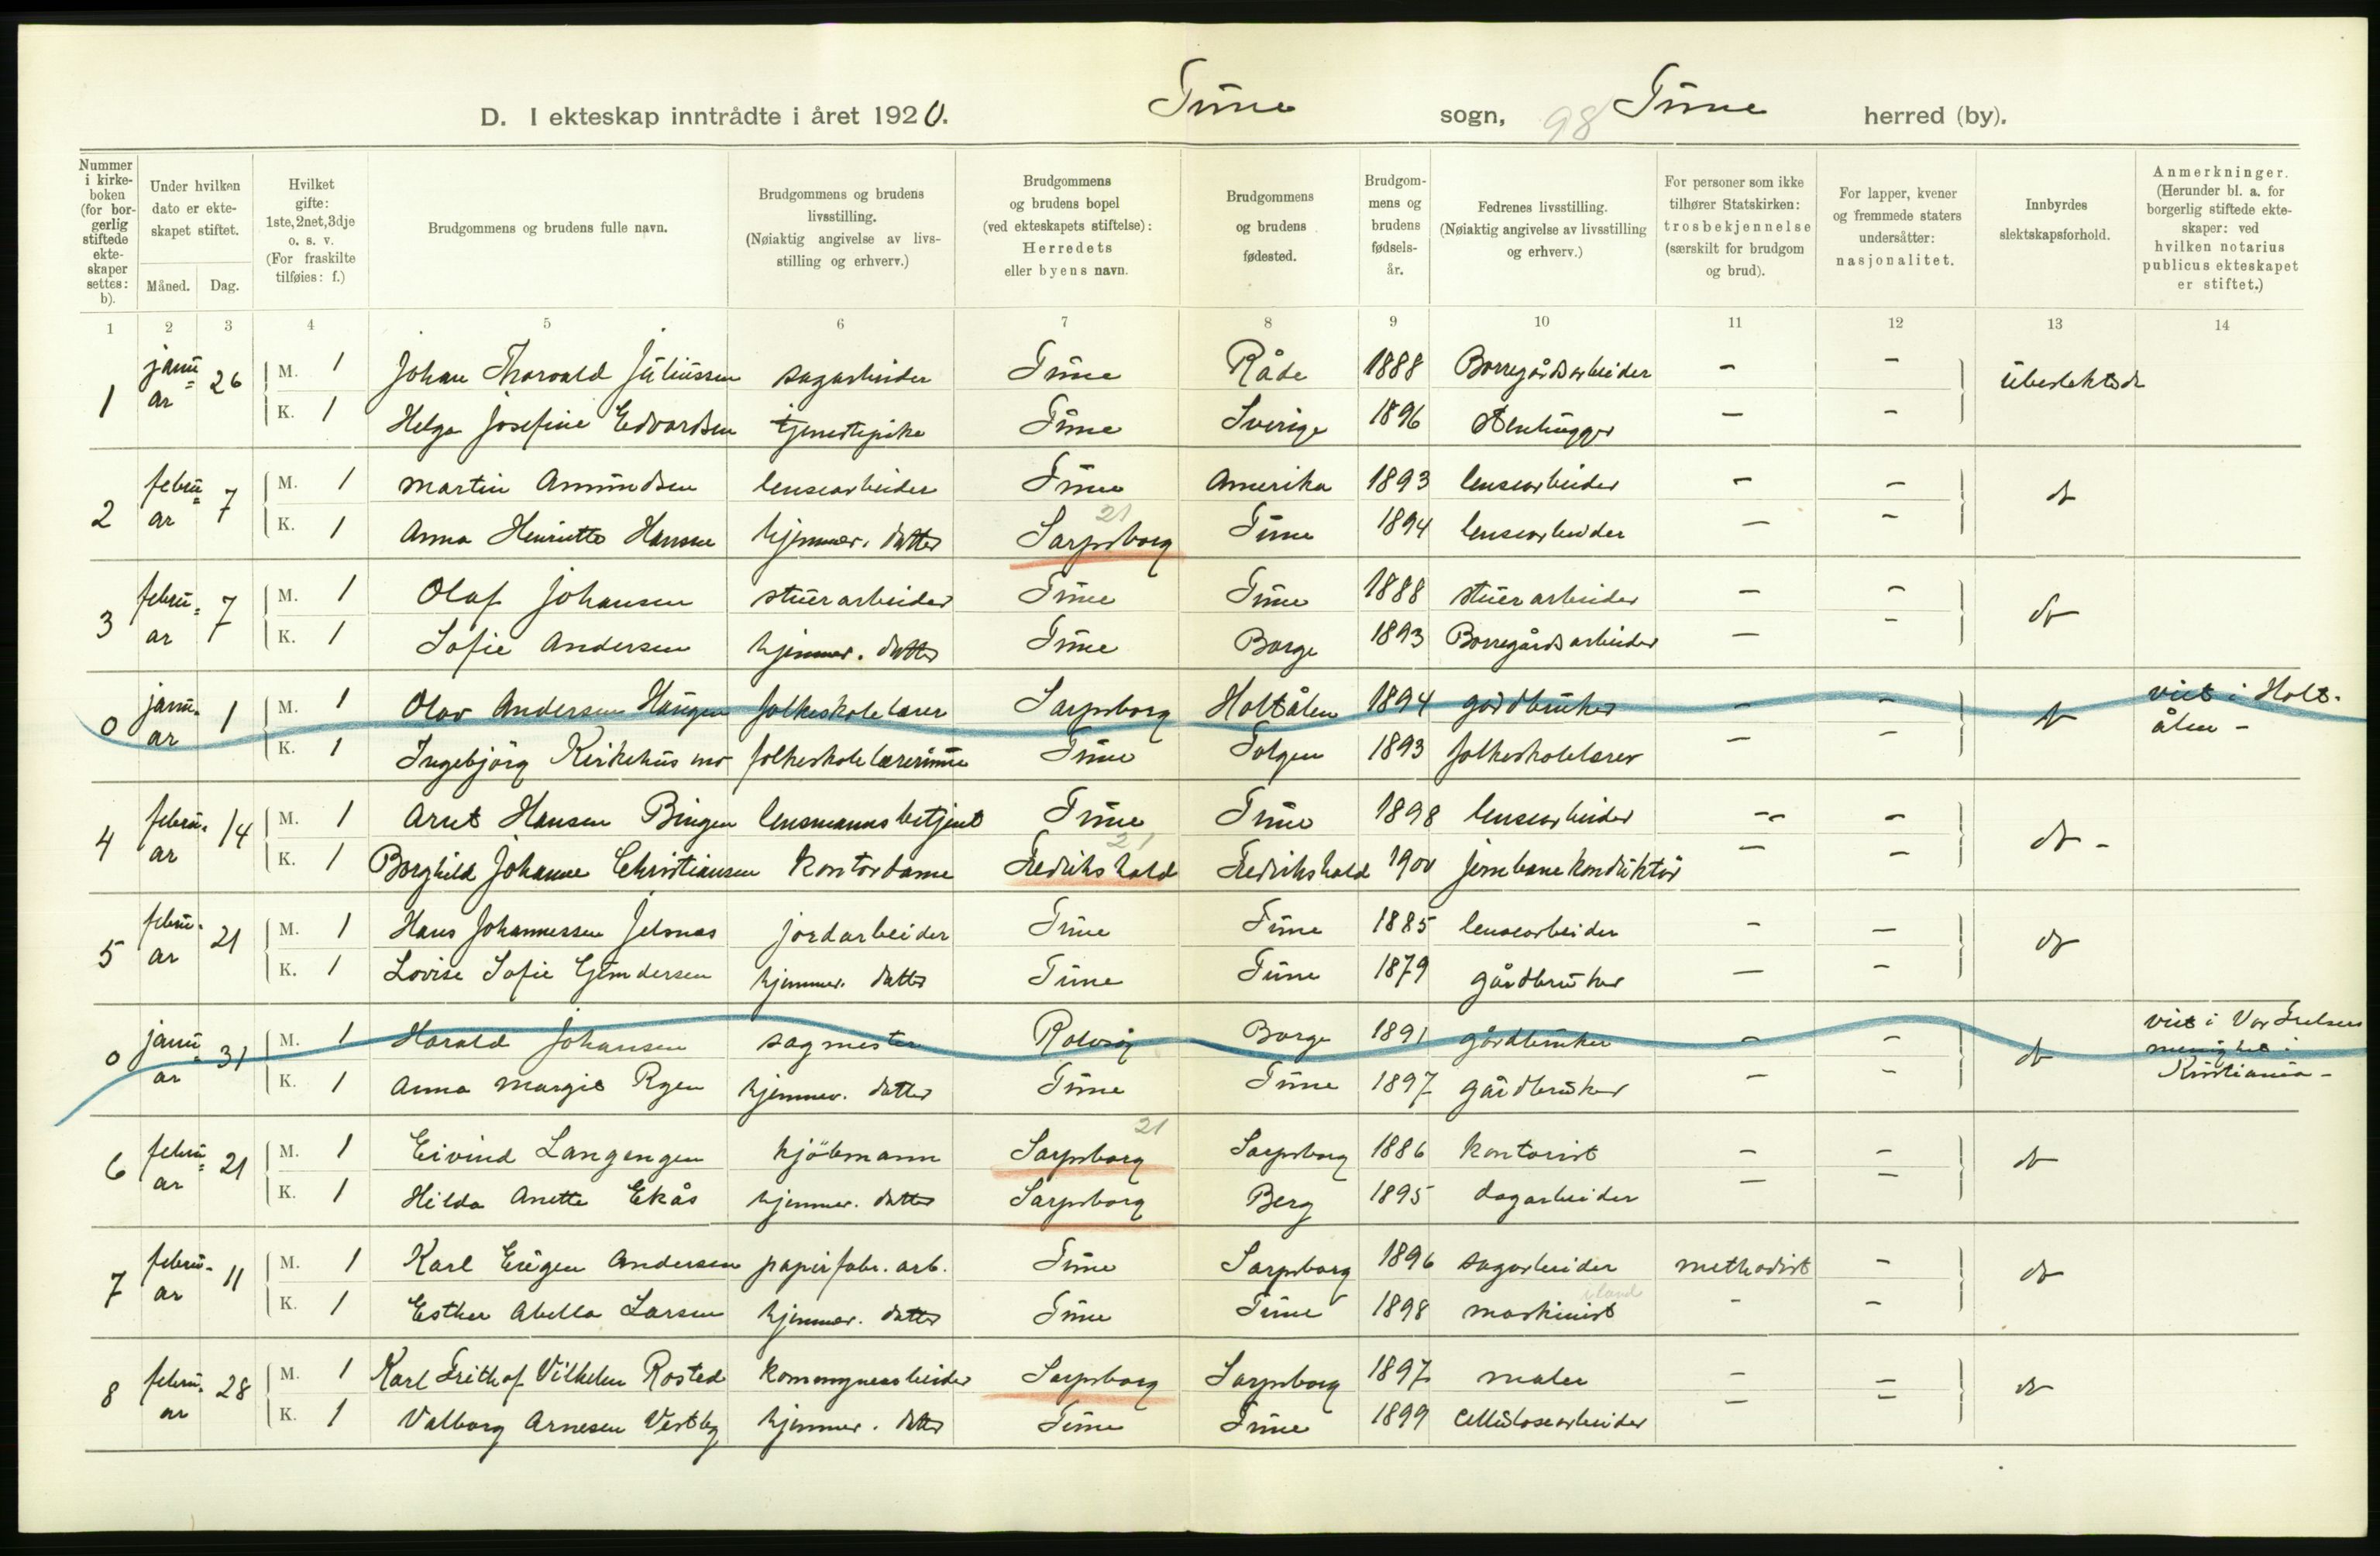 D. I ekteskap inntrådte i året 1920. Tune sogn, 98 Tune herred (by).
Nummer i kirke-boken (for bor-gerlig stiftede ekte-skaper settes: b).
Under hvilken dato er ekte-skapet stiftet.
Måned. Dag.
Hvilket gifte: 1ste, 2net, 3dje o. s. v. (For fraskilte tilføies: f.)
Brudgommens og brudens fulle navn.
Brudgommens og brudens livsstilling. (Nøiaktig angivelse av livs-stilling og erhverv.)
Brudgommens og brudens bopel (ved ekteskapets stiftelse): Herredets eller byens navn.
Brudgommens og brudens fødested.
Brudgom-mens og brudens fødsels-år.
Fedrenes livsstilling. (Nøiaktig angivelse av livsstilling og erhverv.)
For personer som ikke tilhører Statskirken: trosbekjennelse (særskilt for brudgom og brud).
For lapper, kvener og fremmede staters undersåtter: nasjonalitet.
Innbyrdes slektskapsforhold.
Anmerkninger. (Herunder bl. a. for borgerlig stiftede ekte-skaper: ved hvilken notarius publicus ekteskapet er stiftet.)
1 2 3 4 5 6 7 8 9 10 11 12 13 14
1 janu=ar 26 M. 1 Johan Thorvald Juliussen sagarbeider Tune Råde 1888 Borregårdsarbeider - - ubeslektede
K. 1 Helga Josefine Edvardsen tjenestepike Tune Sverige 1896 Stenhugger - -
2 febru=ar 7 M. 1 Martin Amundsen lensearbeider Tune Amerika 1893 lensearbeider - - do
K. 1 Anna Henriette Hansen hjemmev. datter Sarpsborg 21 Tune 1894 lensearbeider - -
3 febru=ar 7 M. 1 Olaf Johansen stuerarbeider Tune Tune 1888 stuerarbeider - - do
K. 1 Sofie Andersen hjemmev. datter Tune Borge 1893 Borregårdsarbeider - -
0 janu=ar 1 M. 1 Olav Andersen Haugen folkeskolelærer Sarpsborg Holtsålen 1894 gårdbruker - - do viet i Holts-
ålen -
K. 1 Ingebjörg Kirkehus mo folkeskolelærerinne Tune Tolgen 1893 folkeskolelærer - -
4 febru-ar 14 M. 1 Arnt Hansen Bingen lensmannsbetjent Tune Tune 1898 lensearbeider - - do -
K. 1 Borghild Johanne Christiansen kontordame Fredrikshald 21 Fredrikshald 1900 jernbanekonduktör - -
5 febru-ar 21 M. 1 Hans Johannessen Jelsnes jordarbeider Tune Tune 1885 lensearbeider - - do
K. 1 Lovise Sofie Gundersen hjemmev. datter Tune Tune 1879 gårdbruker - -
0 janu=ar 31 M. 1 Harald Johansen sagmester Rolvsöy Borge 1891 gårdbruker - - do viet i Vor Frelsers
menighet i
Kristiania -
K. 1 Anna Margit Rygen hjemmev. datter Tune Tune 1897 gårdbruker - -
6 febru=ar 21 M. 1 Eivind Langengen kjöbmann Sarpsborg 21 Sarpsborg 1886 kontorist - - do
K. 1 Hilda Anette Ekås hjemmev. datter Sarpsborg Berg 1895 dagarbeider - -
7 febru-ar 11 M. 1 Karl Eugen Andersen papirfabr. arb. Tune Sarpsborg 1896 sagarbeider methodist - do
K. 1 Esther Abella Larsen hjemmev. datter Tune Tune 1898 maskinist i land - -
8 febru-ar 28 M. 1 Karl Frithof Vilhelm Rosted kommunearbeider Sarpsborg Sarpsborg 1897 maler - - do
K. 1 Valborg Arnesen Vestby hjemmev. datter Tune Tune 1899 cellulosearbeider - -